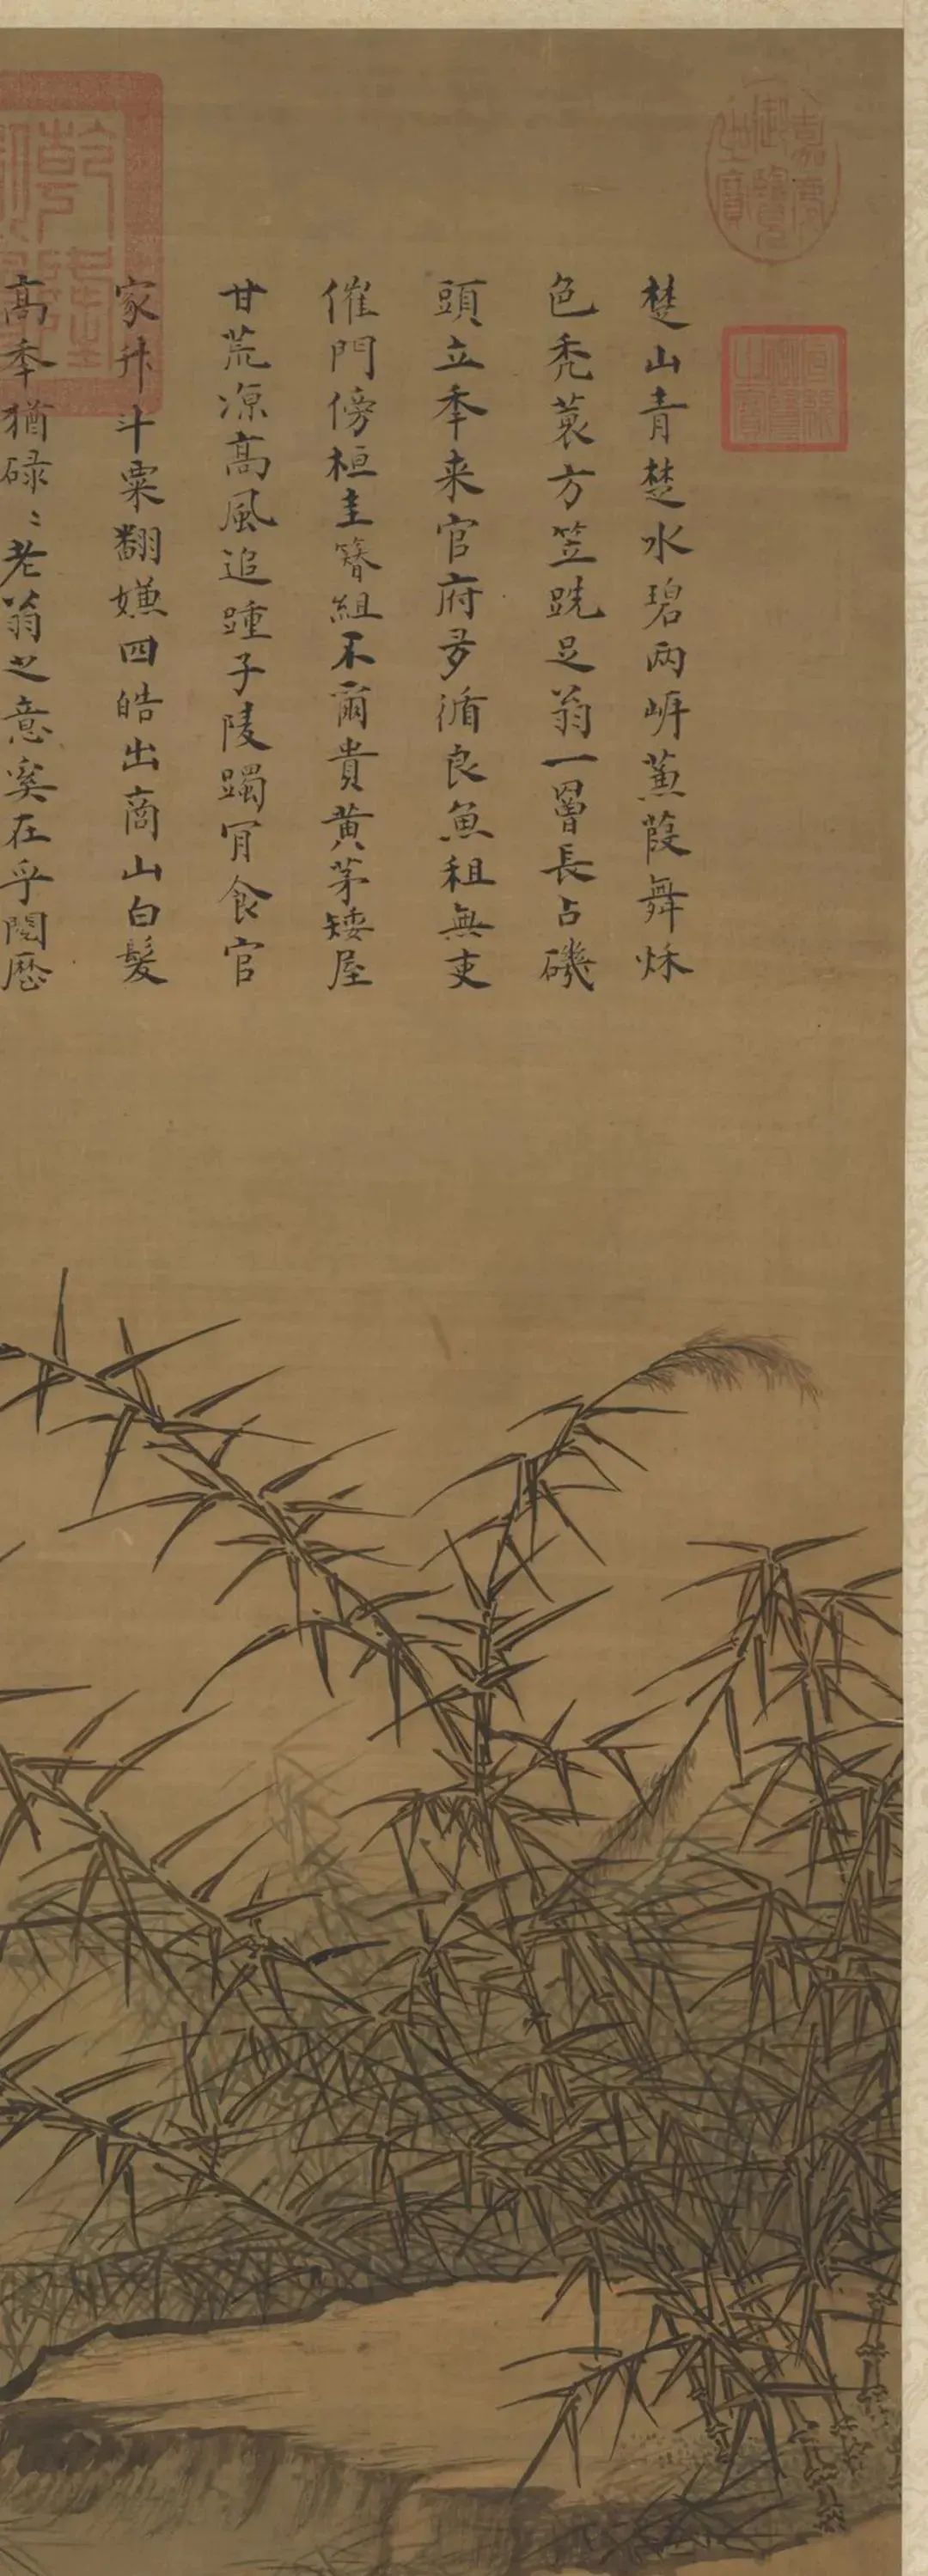 楚山青楚水碧兩岍蒹葭舞秌
色禿蓑方笠跣足翁一罾長占磯
頭立秊来官府多循良魚租無吏
催門傍桓圭簪組不爾貴黄茅矮屋
甘荒凉高風追踵子陵躅肎食官
家升斗粟翻嫌四皓出商山白髮
高秊猶碌〻老翁之意奚在乎閱歷
嘉慶御覽之寶
宣統御覽之寶
乾隆